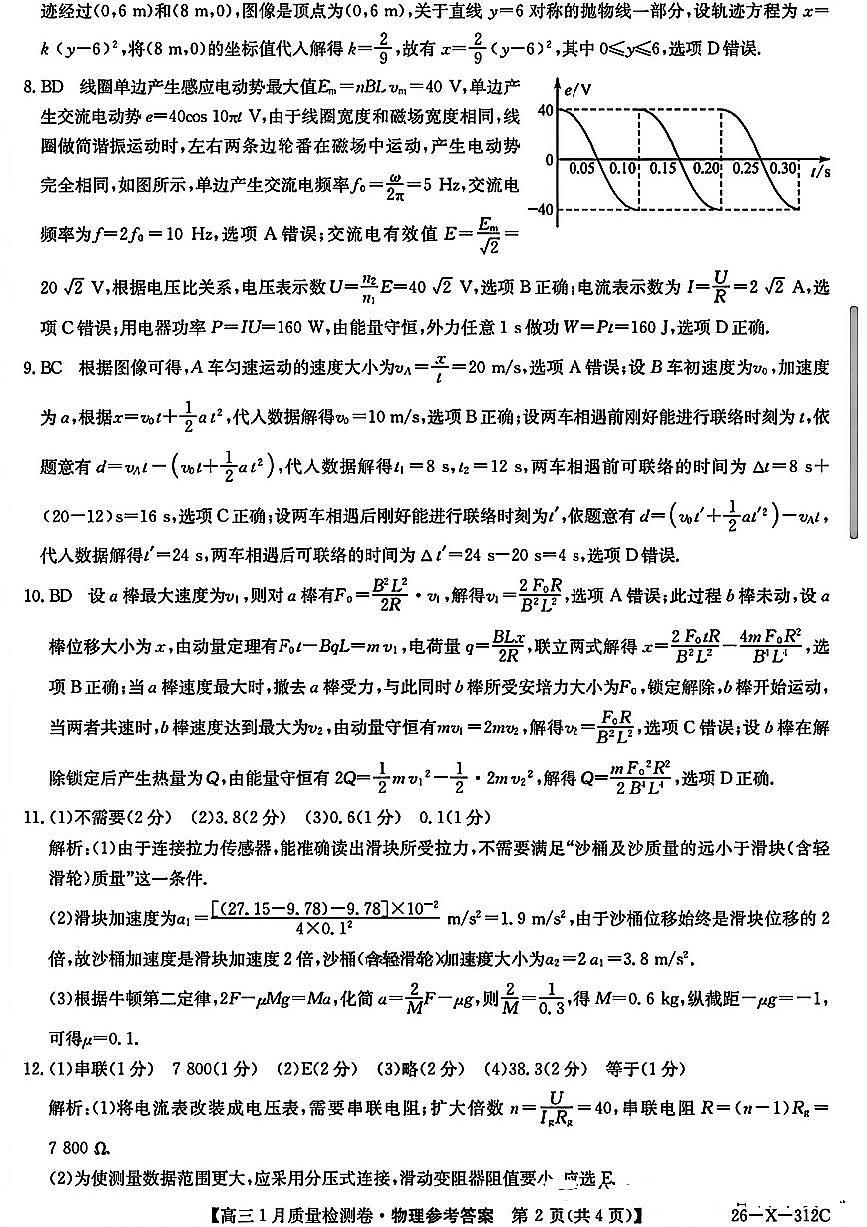 迹经过(0,6 m)和(8 m,0),图像是顶点为(0,6 m),关于直线 y=6 对称的抛物线一部分,设轨迹方程为 x=
k (y-6)²,将(8 m,0)的坐标值代人解得 k=2/9,故有 x=2/9(y-6)²,其中 0⩽y⩽6,选项 D 错误.
8. BD 线圈单边产生感应电动势最大值Eₘ=nBLvₘ=40 V,单边产
生交流电动势 e=40cos 10πt V,由于线圈宽度和磁场宽度相同,线
圈做简谐振运动时,左右两条边轮番在磁场中运动,产生电动势
完全相同,如图所示,单边产生交流电频率f₀=ω/2π=5 Hz,交流电
频率为f=2f₀=10 Hz,选项 A 错误;交流电有效值 E=Eₘ/√2=
e/V
40
0
0.05 0.10 0.15 0.20 0.25 0.30 t/s
-40
20√2 V,根据电压比关系,电压表示数U=n₂/n₁E=40√2 V,选项 B 正确;电流表示数为 I=U/R=2√2 A,选
项 C 错误;用电器功率 P=IU=160 W,由能量守恒,外力任意 1 s 做功 W=Pt=160 J,选项 D 正确.
9. BC 根据图像可得,A 车匀速运动的速度大小为v_A=x/t=20 m/s,选项 A 错误;设 B 车初速度为v₀,加速度
为 a,根据x=v₀t+1/2at²,代人数据解得v₀=10 m/s,选项 B 正确;设两车相遇前刚好能进行联络时刻为 t,依
题意有 d=v_At-(v₀t+1/2at²),代人数据解得t₁=8 s,t₂=12 s,两车相遇前可联络的时间为 Δt=8 s+
(20-12)s=16 s,选项 C 正确;设两车相遇后刚好能进行联络时刻为t′,依题意有 d=(v₀t′+1/2at′²)-v_At,
代人数据解得t′=24 s,两车相遇后可联络的时间为 Δt′=24 s-20 s=4 s,选项 D 错误.
10. BD 设 a 棒最大速度为v₁,则对 a 棒有F₀=B²L²/2R·v₁,解得v₁=2F₀R/B²L²,选项 A 错误;此过程 b 棒未动,设 a
棒位移大小为 x,由动量定理有F₀t-BqL=mv₁,电荷量 q=BLx/2R,联立两式解得 x=2F₀tR/B²L²-4mF₀R²/B⁴L⁴,选
项 B 正确;当 a 棒速度最大时,撤去 a 棒受力,与此同时 b 棒所受安培力大小为F₀,锁定解除,b 棒开始运动,
当两者共速时,b 棒速度达到最大为v₂,由动量守恒有mv₁=2mv₂,解得v₂=F₀R/B²L²,选项 C 错误;设 b 棒在解
除锁定后产生热量为 Q,由能量守恒有 2Q=1/2mv₁²-1/2·2mv₂²,解得 Q=mF₀²R²/2B⁴L⁴,选项 D 正确.
11. (1)不需要(2 分) (2)3.8(2 分) (3)0.6(1 分) 0.1(1 分)
解析:(1)由于连接拉力传感器,能准确读出滑块所受拉力,不需要满足“沙桶及沙质量的远小于滑块(含轻
滑轮)质量”这一条件.
(2)滑块加速度为a₁=[(27.15-9.78)-9.78]×10⁻²/4×0.1² m/s²=1.9 m/s²,由于沙桶位移始终是滑块位移的 2
倍,故沙桶加速度是滑块加速度 2 倍,沙桶(含轻滑轮)加速度大小为a₂=2a₁=3.8 m/s².
(3)根据牛顿第二定律,2F-μMg=Ma,化简 a=2/MF-μg,则2/M=1/0.3,得 M=0.6 kg,纵截距-μg=-1,
可得μ=0.1.
12. (1)串联(1 分) 7 800(1 分) (2)E(2 分) (3)略(2 分) (4)38.3(2 分) 等于(1 分)
解析:(1)将电流表改装成电压表,需要串联电阻;扩大倍数 n=U/I_gR_g=40,串联电阻 R=(n-1)R_g=
7 800 Ω.
(2)为使测量数据范围更大,应采用分压式连接,滑动变阻器阻值要小 应选 E.
【高三 1 月质量检测卷·物理参考答案 第 2 页(共 4 页)】 26-X-312C